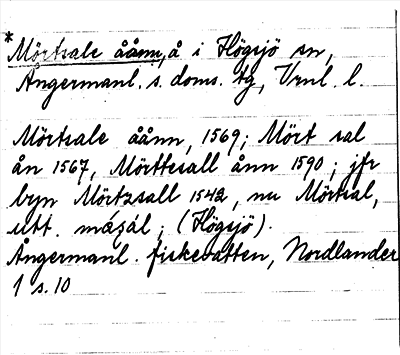 *Mörtsale åånn, å i Högsjö sn,
Ångermanl. s. doms. tg, Vrnl. l.
Mörtsale åånn, 1569; Mört sal
ån 1567, Mörttesall ånn 1590; jfr
byn Mörtzsall 1542, nu Mörtsal,
utt. (Högsjö).
Ångermanl. fiskevatten, Nordlander
1 s. 10